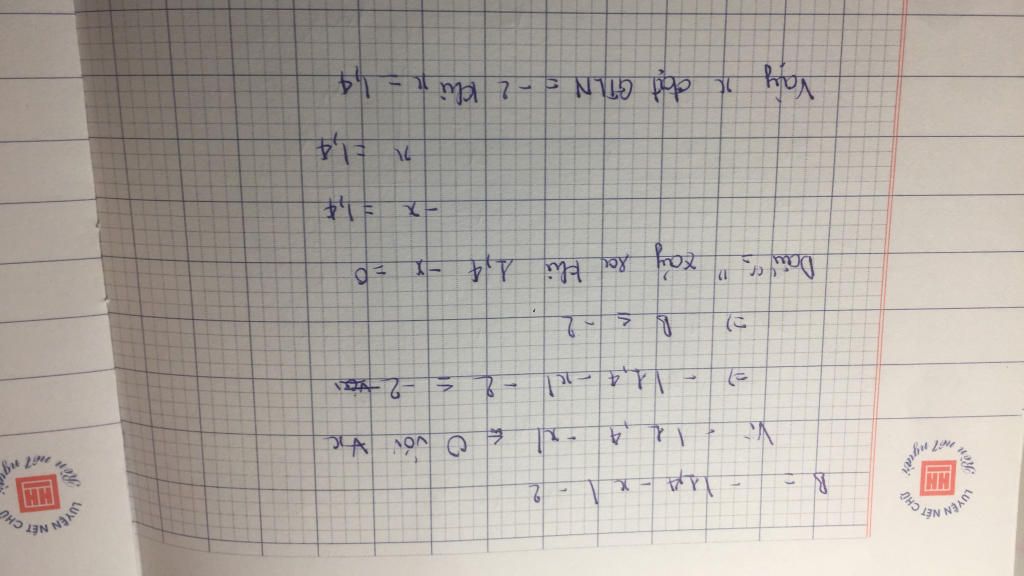 B = - |1,4 - x| - 2
Vì - |1,4 - x| ≤ 0 với ∀x
=> - |1,4 - x| - 2 ≤ - 2
=> B ≤ - 2
Dấu "=" xảy ra khi 1,4 - x = 0
- x = 1,4
x = 1,4
Vậy x đạt GTLN = - 2 khi x = 1,4
LUYỆN NÉT CHỮ
HH
Rèn nết người
LUYỆN NÉT CHỮ
HH
Rèn nết người